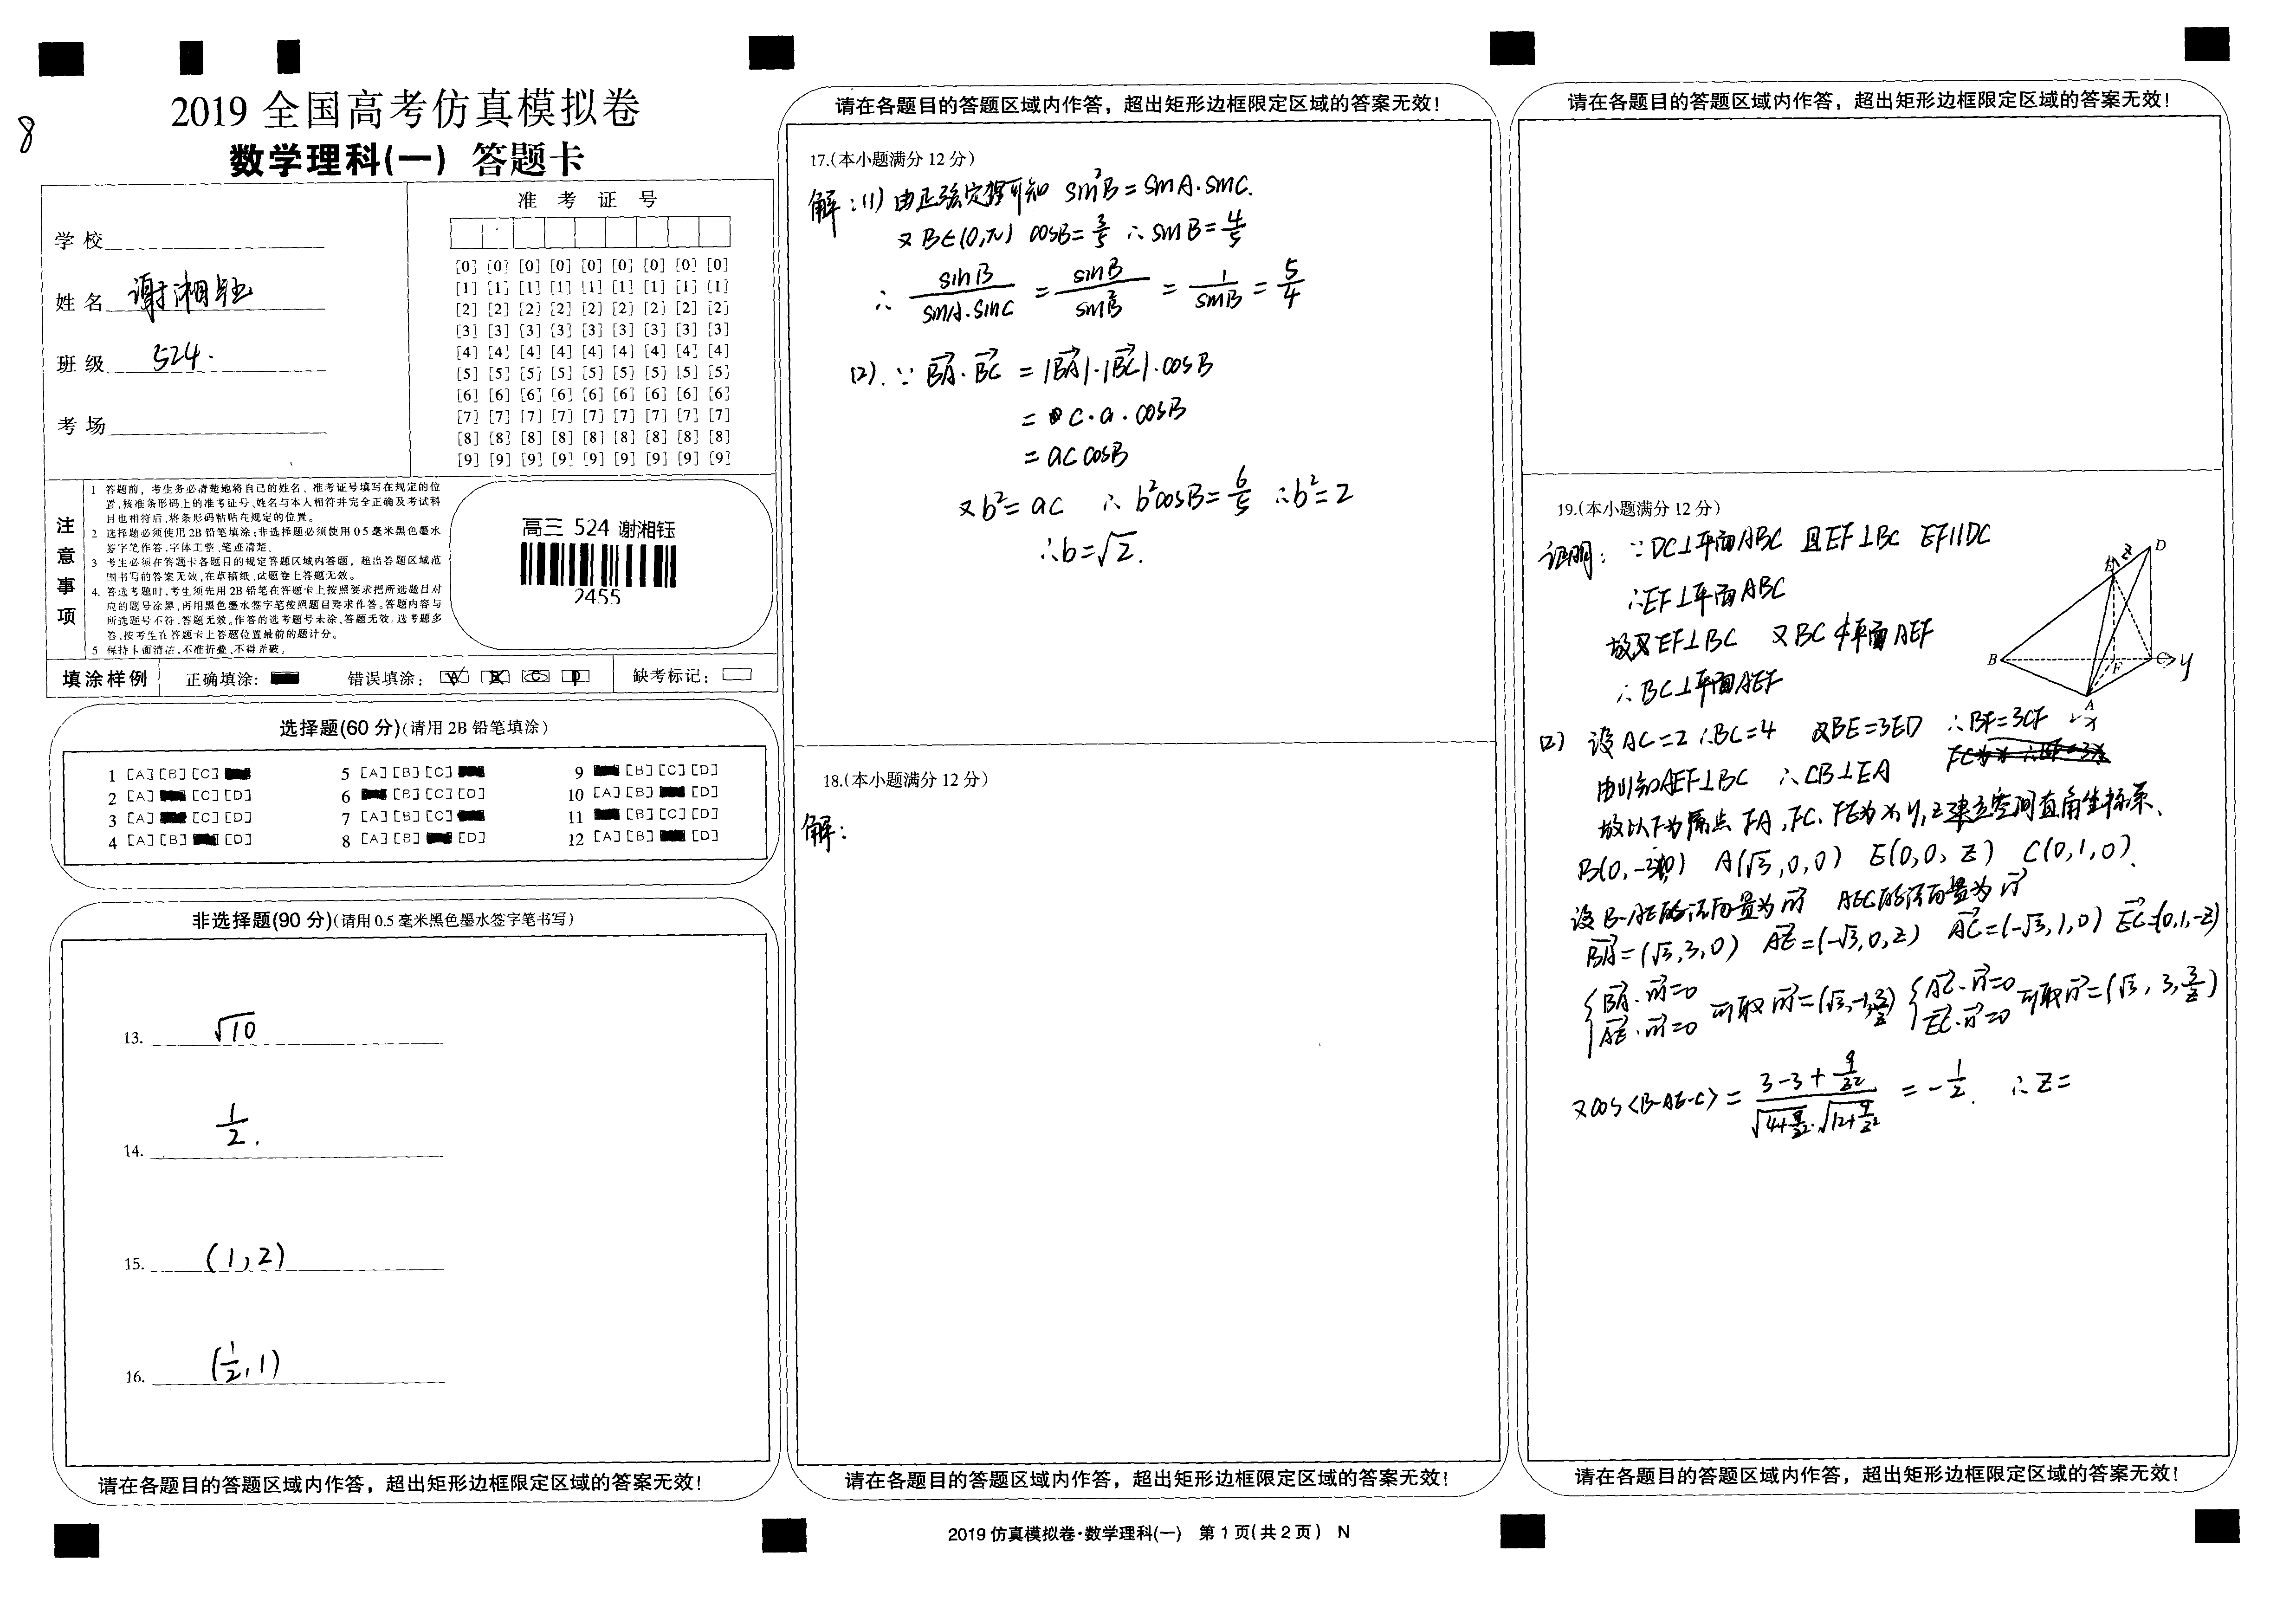 8
2019 全国高考仿真模拟卷
数学理科(一) 答题卡
学校
姓名 谢湘钰
班级 524.
考场
准考证号
[0] [0] [0] [0] [0] [0] [0] [0] [0]
[1] [1] [1] [1] [1] [1] [1] [1] [1]
[2] [2] [2] [2] [2] [2] [2] [2] [2]
[3] [3] [3] [3] [3] [3] [3] [3] [3]
[4] [4] [4] [4] [4] [4] [4] [4] [4]
[5] [5] [5] [5] [5] [5] [5] [5] [5]
[6] [6] [6] [6] [6] [6] [6] [6] [6]
[7] [7] [7] [7] [7] [7] [7] [7] [7]
[8] [8] [8] [8] [8] [8] [8] [8] [8]
[9] [9] [9] [9] [9] [9] [9] [9] [9]
注意事项
1 答题前，考生务必清楚地将自己的姓名、准考证号填写在规定的位
置，核准条形码上的准考证号、姓名与本人相符并完全正确及考试科
目也相符后，将条形码粘贴在规定的位置。
2 选择题必须使用2B铅笔填涂；非选择题必须使用05毫米黑色墨水
签字笔作答，字体工整、笔迹清楚。
3 考生必须在答题卡各题目的规定答题区域内答题，超出答题区域范
围书写的答案无效，在草稿纸、试题卷上答题无效。
4. 答选考题时，考生须先用2B铅笔在答题卡上按照要求把所选题目对
应的题号涂黑，再用黑色墨水签字笔按照题目要求作答。答题内容与
所选题号不符，答题无效。作答的选考题号未涂，答题无效。选考题多
答，按考生在答题卡上答题位置最前的题计分。
5 保持卡面清洁，不准折叠、不得弄破。
高三 524 谢湘钰
2455
填涂样例 正确填涂： 错误填涂： 缺考标记：
选择题(60分)(请用2B铅笔填涂)
1 [A] [B] [C]
2 [A] [C] [D]
3 [A] [C] [D]
4 [A] [B] [D]
5 [A] [B] [C]
6 [B] [C] [D]
7 [A] [B] [C]
8 [A] [B] [D]
9 [B] [C] [D]
10 [A] [B] [D]
11 [B] [C] [D]
12 [A] [B] [D]
非选择题(90分)(请用0.5毫米黑色墨水签字笔书写)
13. √10
14. 1/2.
15. (1,2)
16. (1/2,1)
请在各题目的答题区域内作答，超出矩形边框限定区域的答案无效！
请在各题目的答题区域内作答，超出矩形边框限定区域的答案无效！
17.(本小题满分12分)
解：(1) 由正弦定理可知 sin²B=sinA·sinC.
又B∈(0,π) cosB=3/5 ∴sinB=4/5
∴ sinB/(sinA·sinC) = sinB/sin²B = 1/sinB = 5/4
(2). ∵ BA→·BC→ = |BA→|·|BC→|·cosB
= c·a·cosB
= ac cosB
又b²=ac ∴b²cosB=6/5 ∴b²=2
∴b=√2.
18.(本小题满分12分)
解：
请在各题目的答题区域内作答，超出矩形边框限定区域的答案无效！
2019 仿真模拟卷·数学理科(一) 第1页(共2页) N
请在各题目的答题区域内作答，超出矩形边框限定区域的答案无效！
19.(本小题满分12分)
证明：∵DC⊥平面ABC 且EF⊥BC EF∥DC
∴EF⊥平面ABC
故 EF⊥BC 又BC⊄平面AEF
∴BC⊥平面AEF
B E z D C y F A x
(2) 设AC=2 ∴BC=4 又BE=3ED ∴BF=3CF
由(1)知AEF⊥BC ∴CB⊥EA
故以F为原点 FA,FC,FE为x,y,z建立空间直角坐标系.
B(0,-3,0) A(√3,0,0) E(0,0,z) C(0,1,0).
设B-AE的法向量为m→ AEC的法向量为n→
BA→=(√3,3,0) AE→=(-√3,0,z) AC→=(-√3,1,0) EC→=(0,1,-z)
{BA→·m→=0 AE→·m→=0 可取m→=(√3,-1,3/z) {AC→·n→=0 EC→·n→=0 可取n→=(√3,3,3/z)
又cos<B-AE-C>= (3-3+9/z²)/(√(4+9/z²)·√(12+9/z²)) = -1/2. ∴z=
请在各题目的答题区域内作答，超出矩形边框限定区域的答案无效！